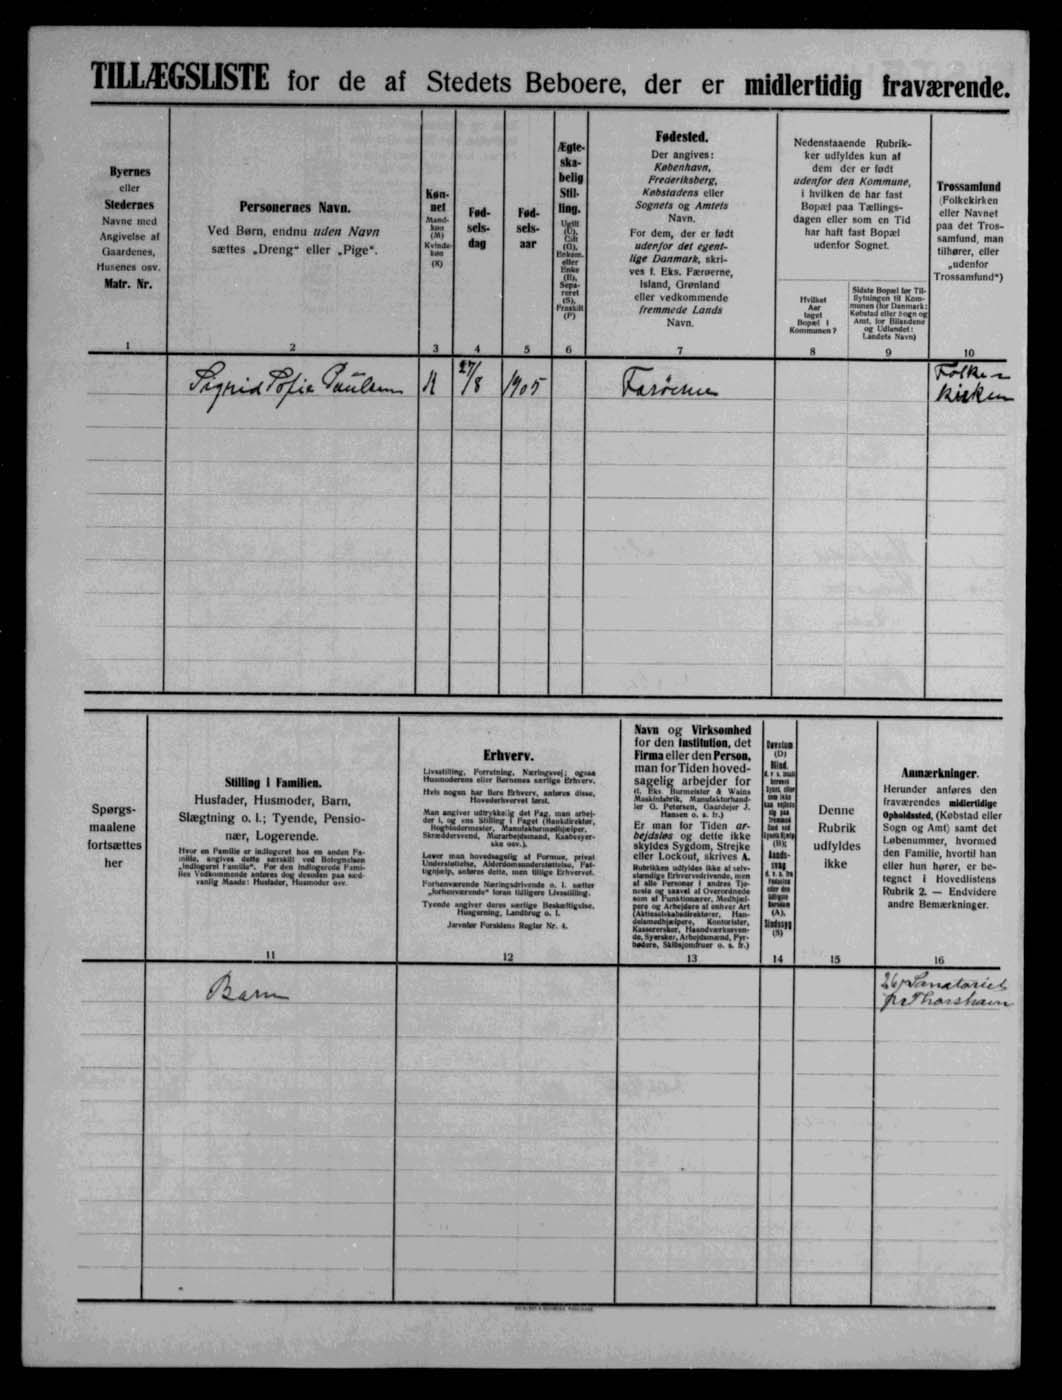 TILLÆGSLISTE for de af Stedets Beboere, der er midlertidig fraværende.
Byernes
eller
Stedernes
Navne med
Angivelse af
Gaardenes,
Husenes osv.
Matr. Nr.
1
Personernes Navn.
Ved Børn, endnu uden Navn
sættes „Dreng“ eller „Pige“.
2
Køn-
net
Mand-
køn
(M)
Kvinde-
køn
(K)
3
Fød-
sels-
dag
4
Fød-
sels-
aar
5
Ægte-
ska-
belig
Stil-
ling.
Ugift
(U),
Gift
(G),
Enkem.
eller
Enke
(E),
Sepa-
reret
(S),
Fraskilt
(F)
6
Fødested.
Der angives:
København,
Frederiksberg,
Købstadens eller
Sognets og Amtets
Navn.
For dem, der er født
udenfor det egent-
lige Danmark, skri-
ves f. Eks. Færøerne,
Island, Grønland
eller vedkommende
fremmede Lands
Navn.
7
Nedenstaaende Rubrik-
ker udfyldes kun af
dem der er født
udenfor den Kommune,
i hvilken de har fast
Bopæl paa Tællings-
dagen eller som en Tid
har haft fast Bopæl
udenfor Sognet.
Hvilket
Aar
taget
Bopæl i
Kommunen?
8
Sidste Bopæl før Til-
flytningen til Kom-
munen (for Danmark:
Købstad eller Sogn og
Amt, for Bilandene
og Udlandet:
Landets Navn)
9
Trossamfund
(Folkekirken
eller Navnet
paa det Tros-
samfund, man
tilhører, eller
„udenfor
Trossamfund“)
10
Sigrid Sofie Paulsen K 27/8 1905 Farøerne Folke-
kirken
Spørgs-
maalene
fortsættes
her
Stilling i Familien.
Husfader, Husmoder, Barn,
Slægtning o. l.; Tyende, Pensio-
nær, Logerende.
Hvor en Familie er indlogeret hos en anden Fa-
milie, angives dette særskilt ved Betegnelsen
„indlogeret Familie“. For den indlogerede Fami-
lies Vedkommende anføres dog desuden paa sæd-
vanlig Maade: Husfader, Husmoder osv.
11
Erhverv.
Livsstilling, Forretning, Næringsvej; ogsaa
Husmoderens eller Børnenes særlige Erhverv.
Hvis nogen har flere Erhverv, anføres disse,
Hovederhvervet først.
Man angiver udtrykkelig det Fag, man arbej-
der i, og ens Stilling i Faget (Bankdirektør,
Bogbindermester, Manufakturmedhjælper,
Skræddersvend, Murarbejdsmand, Kaabesyer-
ske osv.).
Lever man hovedsagelig af Formue, privat
Understøttelse, Alderdomsunderstøttelse, Fat-
tighjælp, anføres dette, men tillige Erhvervet.
Forhenværende Næringsdrivende o. l. sætter
„forhenværende“ foran tidligere Livsstilling.
Tyende angiver deres særlige Beskæftigelse,
Husgerning, Landbrug o. l.
Jævnfør Forsidens Regler Nr. 4.
12
Navn og Virksomhed
for den Institution, det
Firma eller den Person,
man for Tiden hoved-
sagelig arbejder for
(f. Eks. Burmeister & Wains
Maskinfabrik, Manufakturhand-
ler G. Petersen, Gaardejer J.
Hansen o. s. fr.)
Er man for Tiden ar-
bejdsløs og dette ikke
skyldes Sygdom, Strejke
eller Lockout, skrives A.
Rubrikken udfyldes ikke af selv-
stændige Erhvervsdrivende, men
af alle Personer i andres Tje-
neste og saavel af Overordnede
som af Funktionærer, Medhjæl-
pere og Arbejdere af enhver Art
(Aktieselskabsdirektører, Han-
delsmedhjælpere, Kontorister,
Kassererske, Haandværkssven-
de, Syersker, Arbejdsmænd, Fyr-
bødere, Skibsjomfruer o. s. fr.)
13
Døvstum
(D)
Blind,
14
Denne
Rubrik
udfyldes
ikke
15
Anmærkninger.
Herunder anføres den
fraværendes midlertidige
Opholdssted, (Købstad eller
Sogn og Amt) samt det
Løbenummer, hvormed
den Familie, hvortil han
eller hun hører, er be-
tegnet i Hovedlistens
Rubrik 2. — Endvidere
andre Bemærkninger.
16
Barn Sanatoriet
Thorshavn